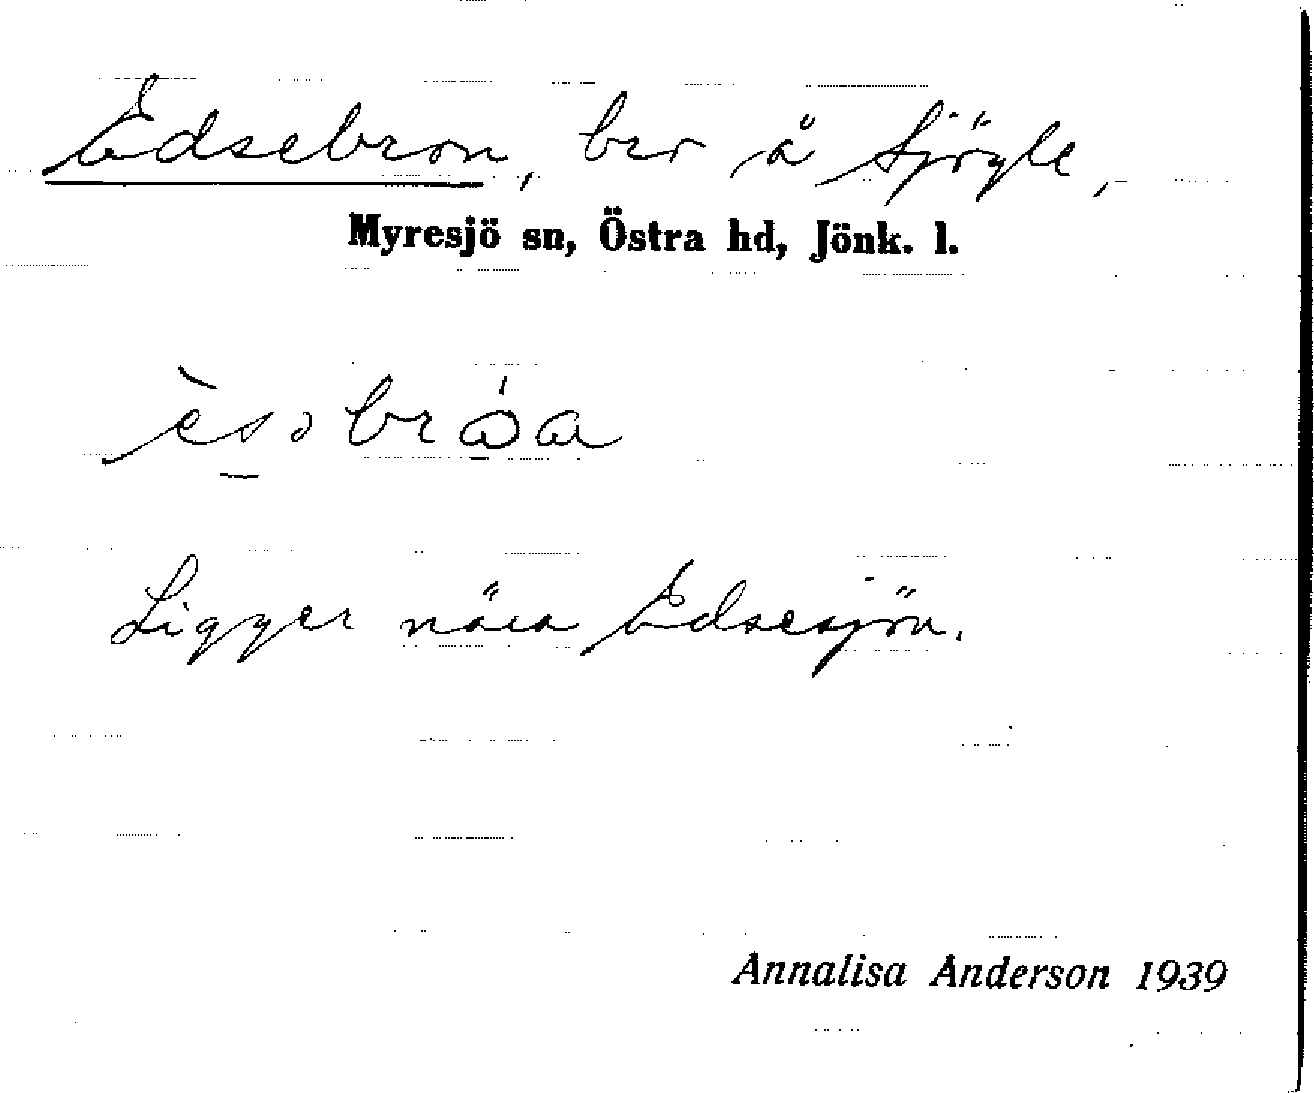 Edsebron, bro å Sjögle,
Myresjö sn, Östra hd, Jönk. l.
Ligger nära Edsesjön.
Annalisa Anderson 1939